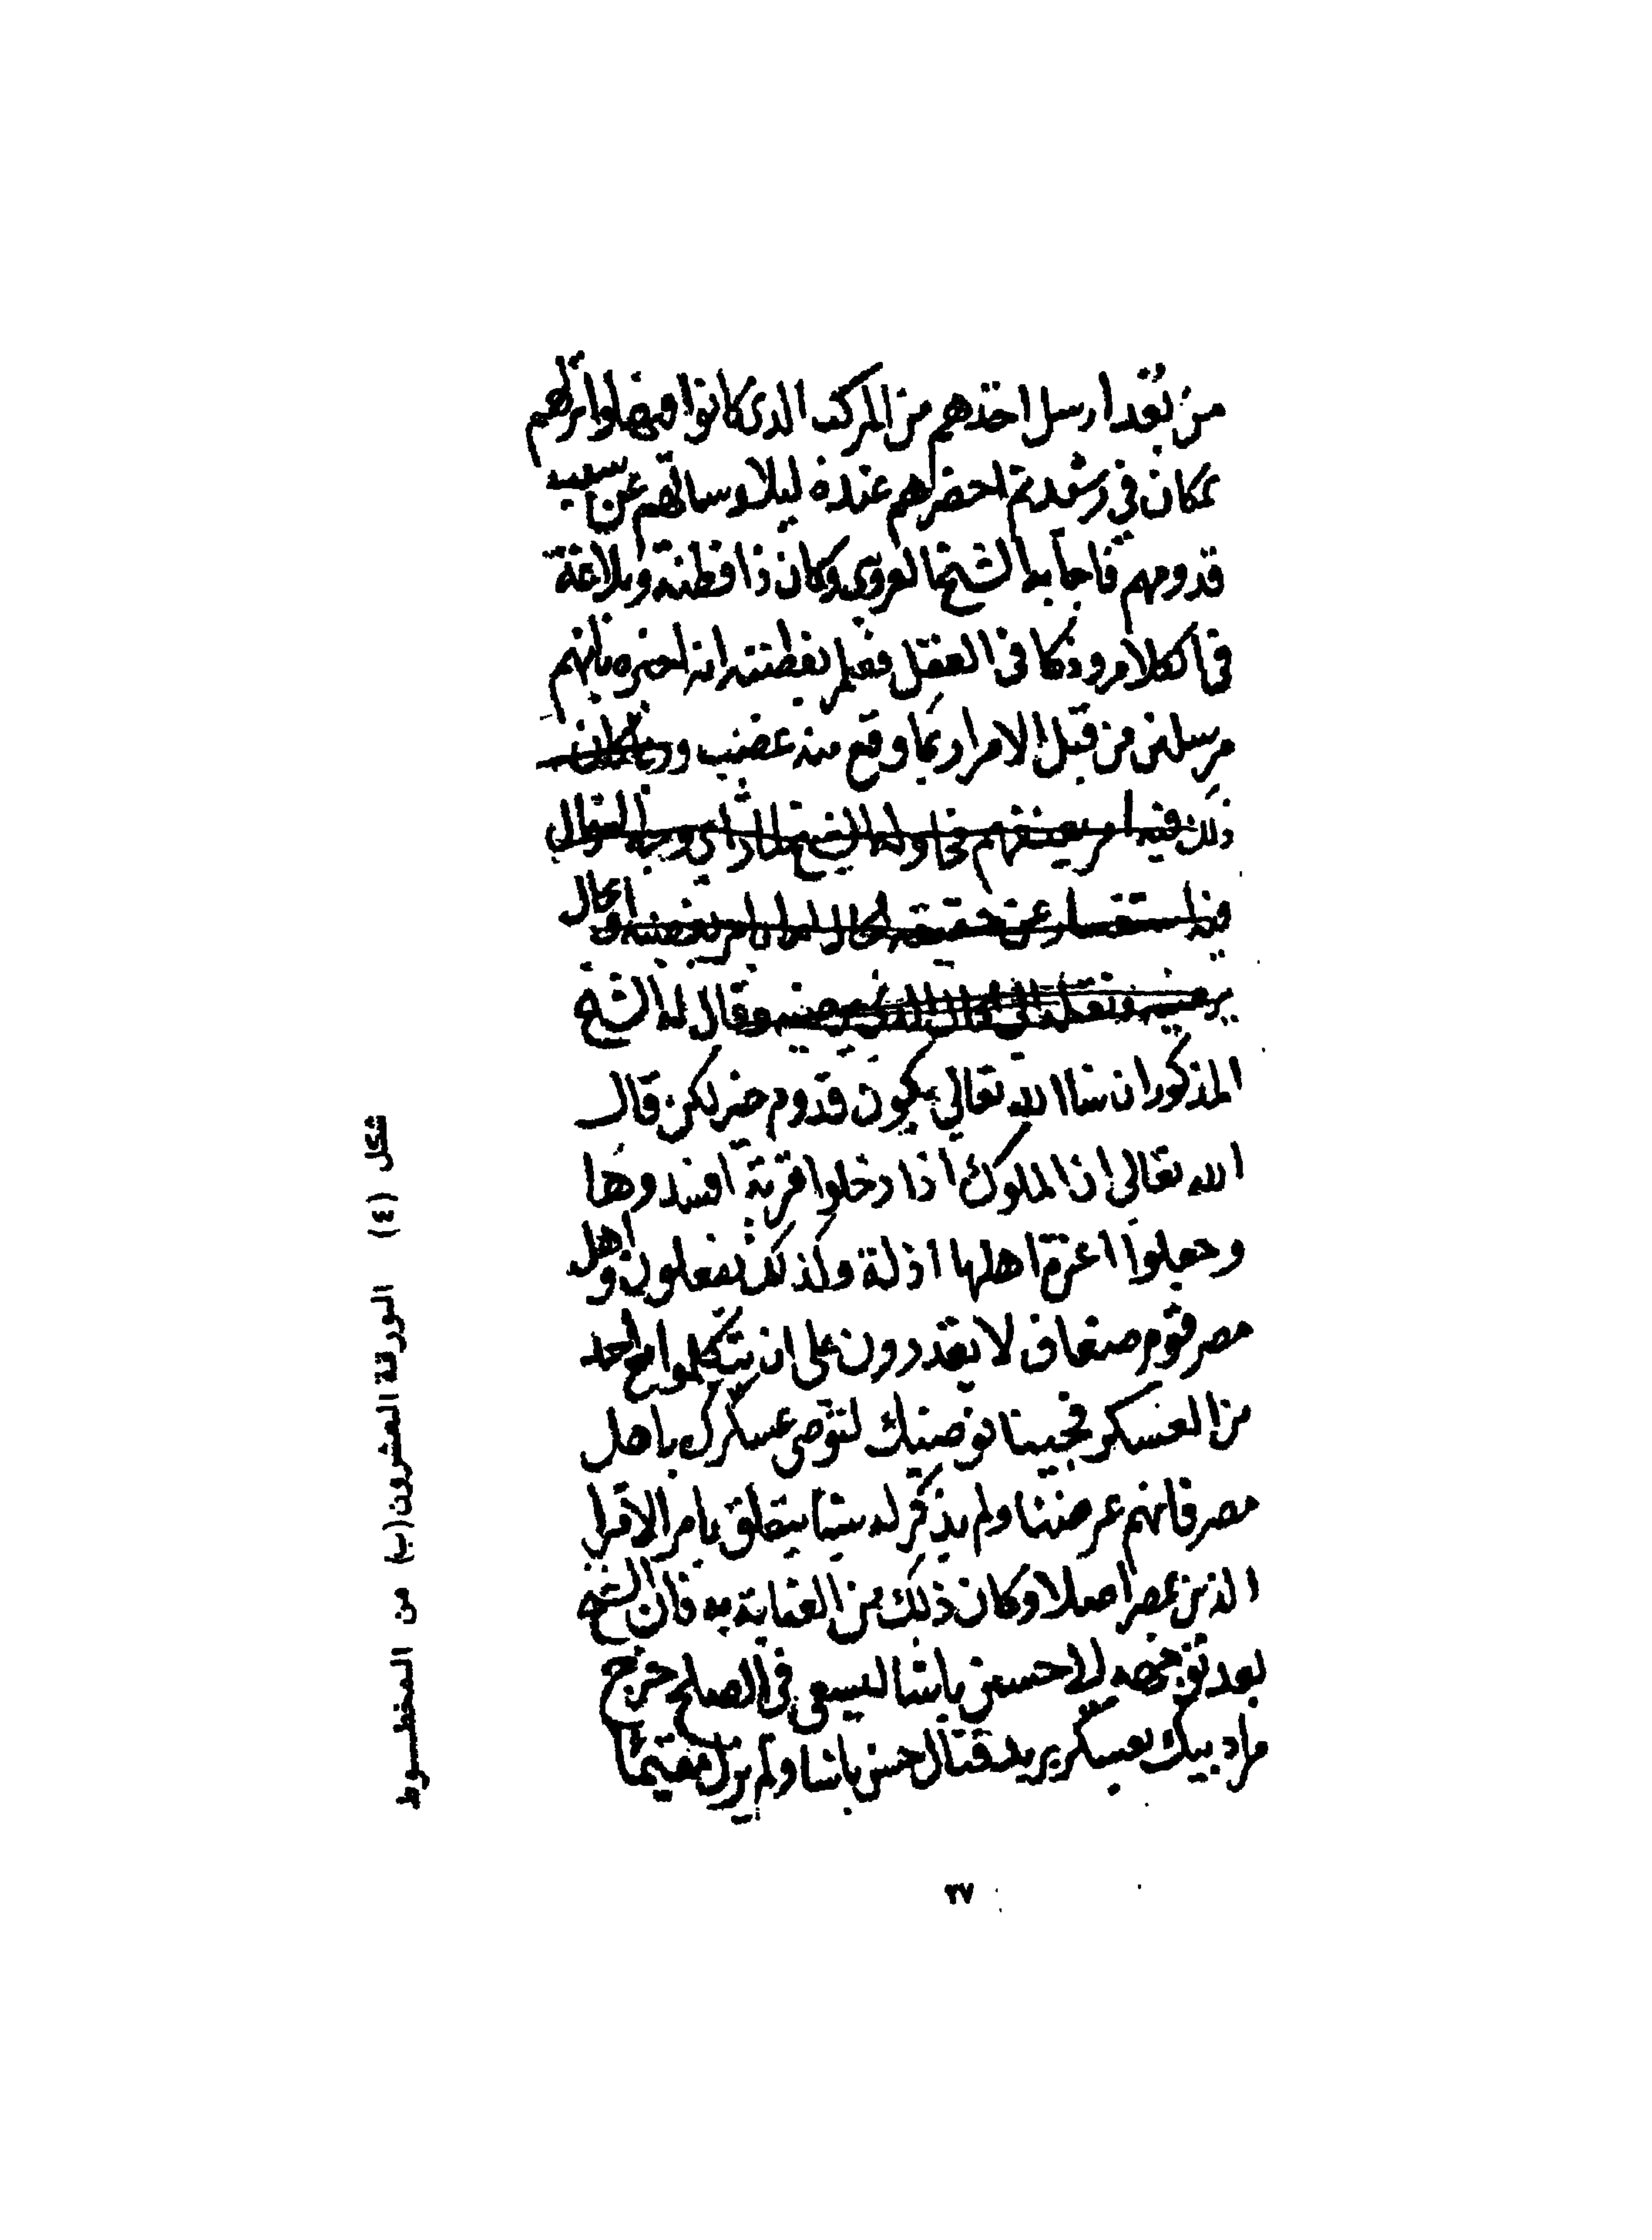 من بعد ارسل اخذهم من المركب الذى كانوا فيها وانزلهم
بمكان في رشيد ثم احضرهم عنده ليلا وسالهم عن سبب
قدومهم فاجابه الشيخ العروسى وكان ذا فطنة وبلاغة
فى الكلام وذكا فى العقل فعلم بفطنته انه اخبره بانهم
مرسلين من قبل الامرا ربما وقع منه غضب وربما كان
ذلك فيه امر يعنفهم الشيخ السوال
فيه استفسار عن حقيقة الحال
وقال له الشيخ
المذكور ان شاالله تعالي يكون قدوم خير لكن قال
الله تعالى ان الملوك اذا دخلوا قرية افسدوها
وجعلوا اعزة اهلها اذلة وكذلك يفعلون واهل
مصر قوم ضعاف لا يقدرون على ان يتكلموا مع احد
من العسكر فجينا نوصيك لتوصى عسكرك باهل
مصر فانهم عرضنا ولم يذكر له شيا يتعلق بامر الامرا
الذين بمصر اصلا وكان ذلك من العناية به فان الشيخ
بعد توجهه الى حسين باشا ليسعى فى الصلح خرج
مراد بيك بعسكر يريد قتال حسن باشا ولم يزل مقيما
شكل (٤) الورقة العشرون (ب) من المخطـــوط
٢٧